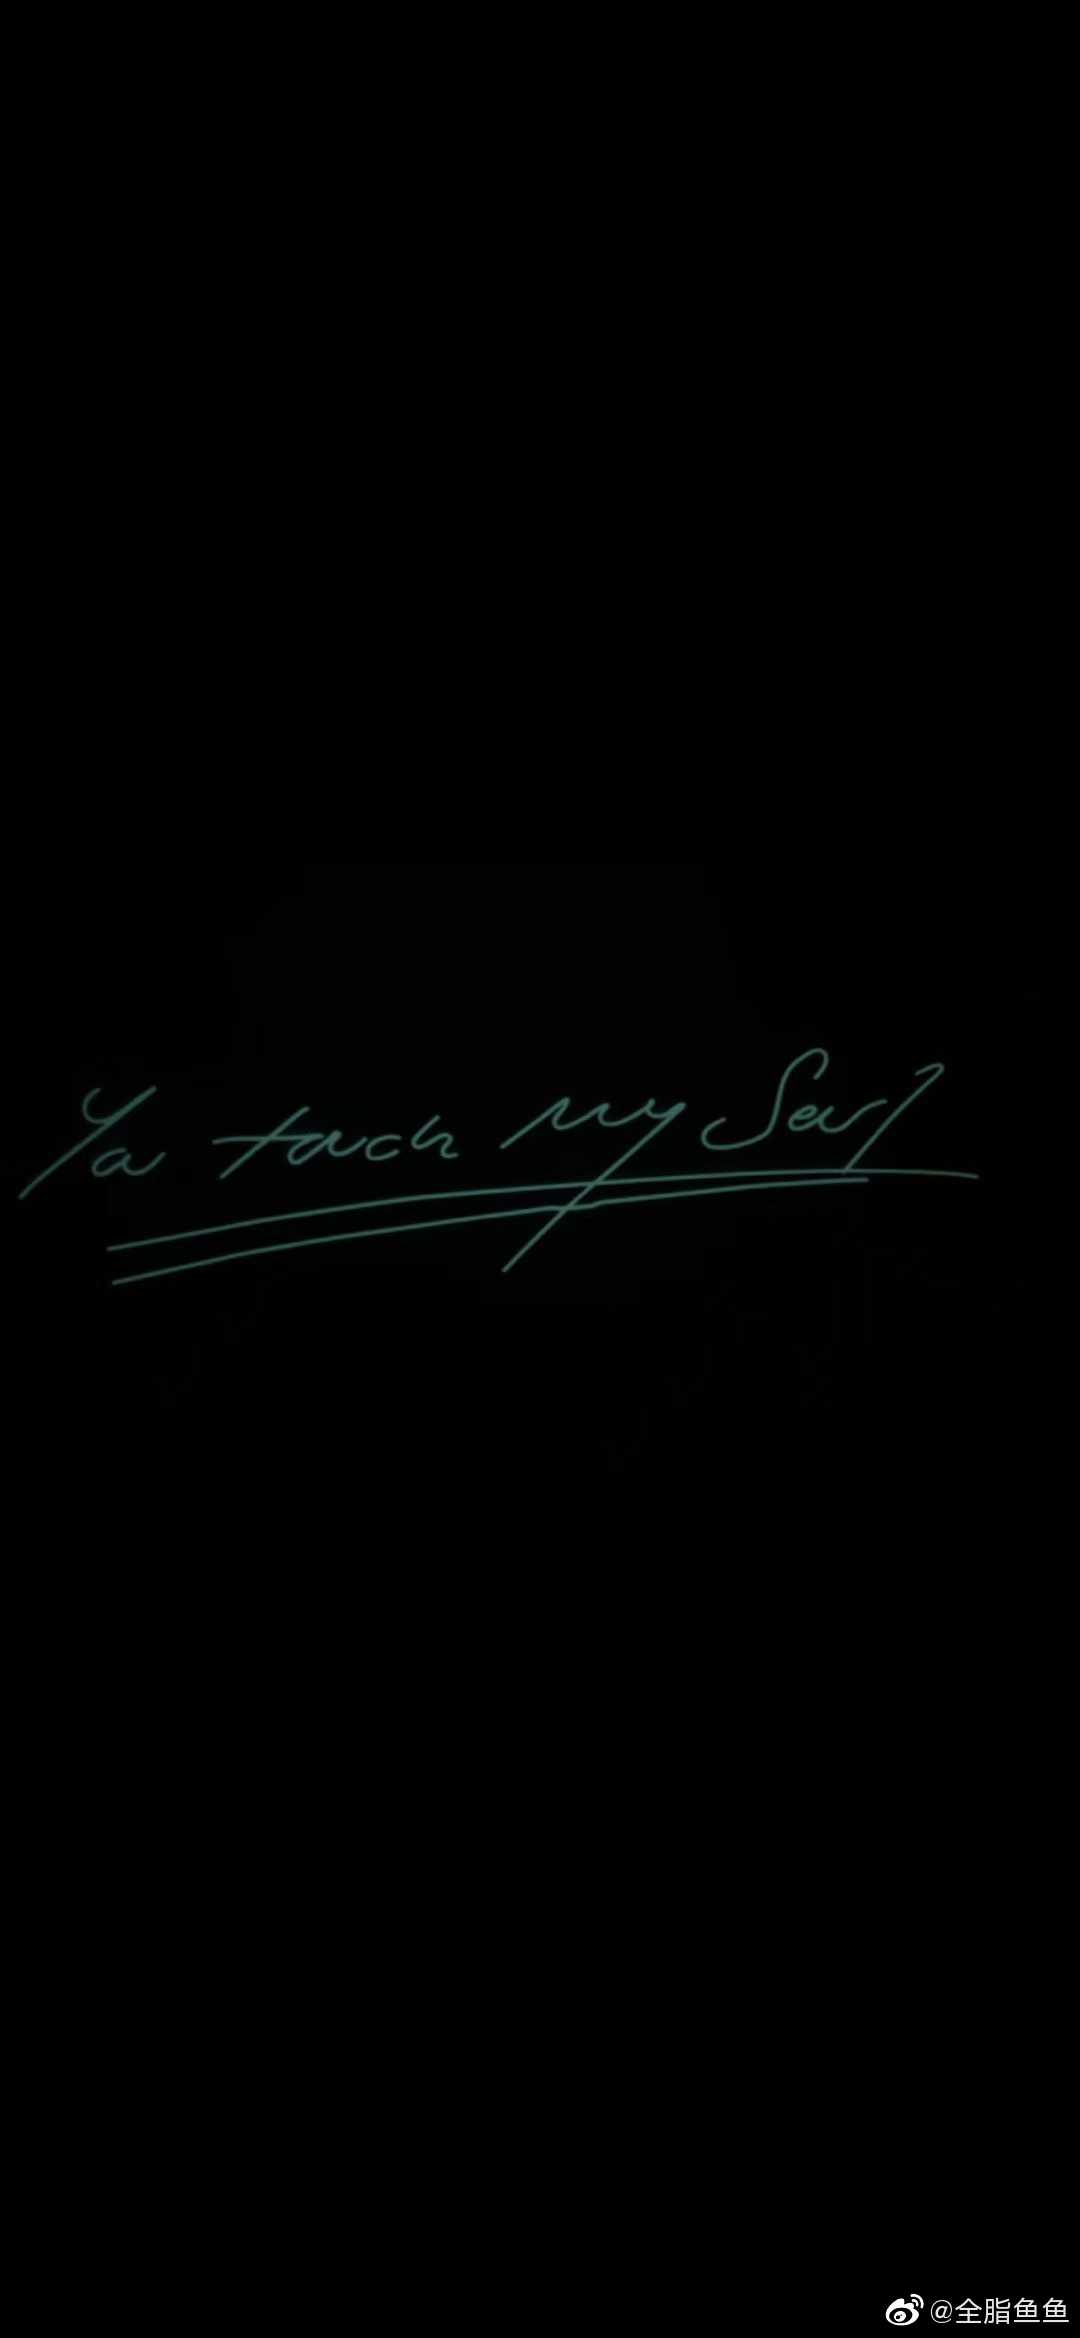 You touch my Soul
@全脂鱼鱼